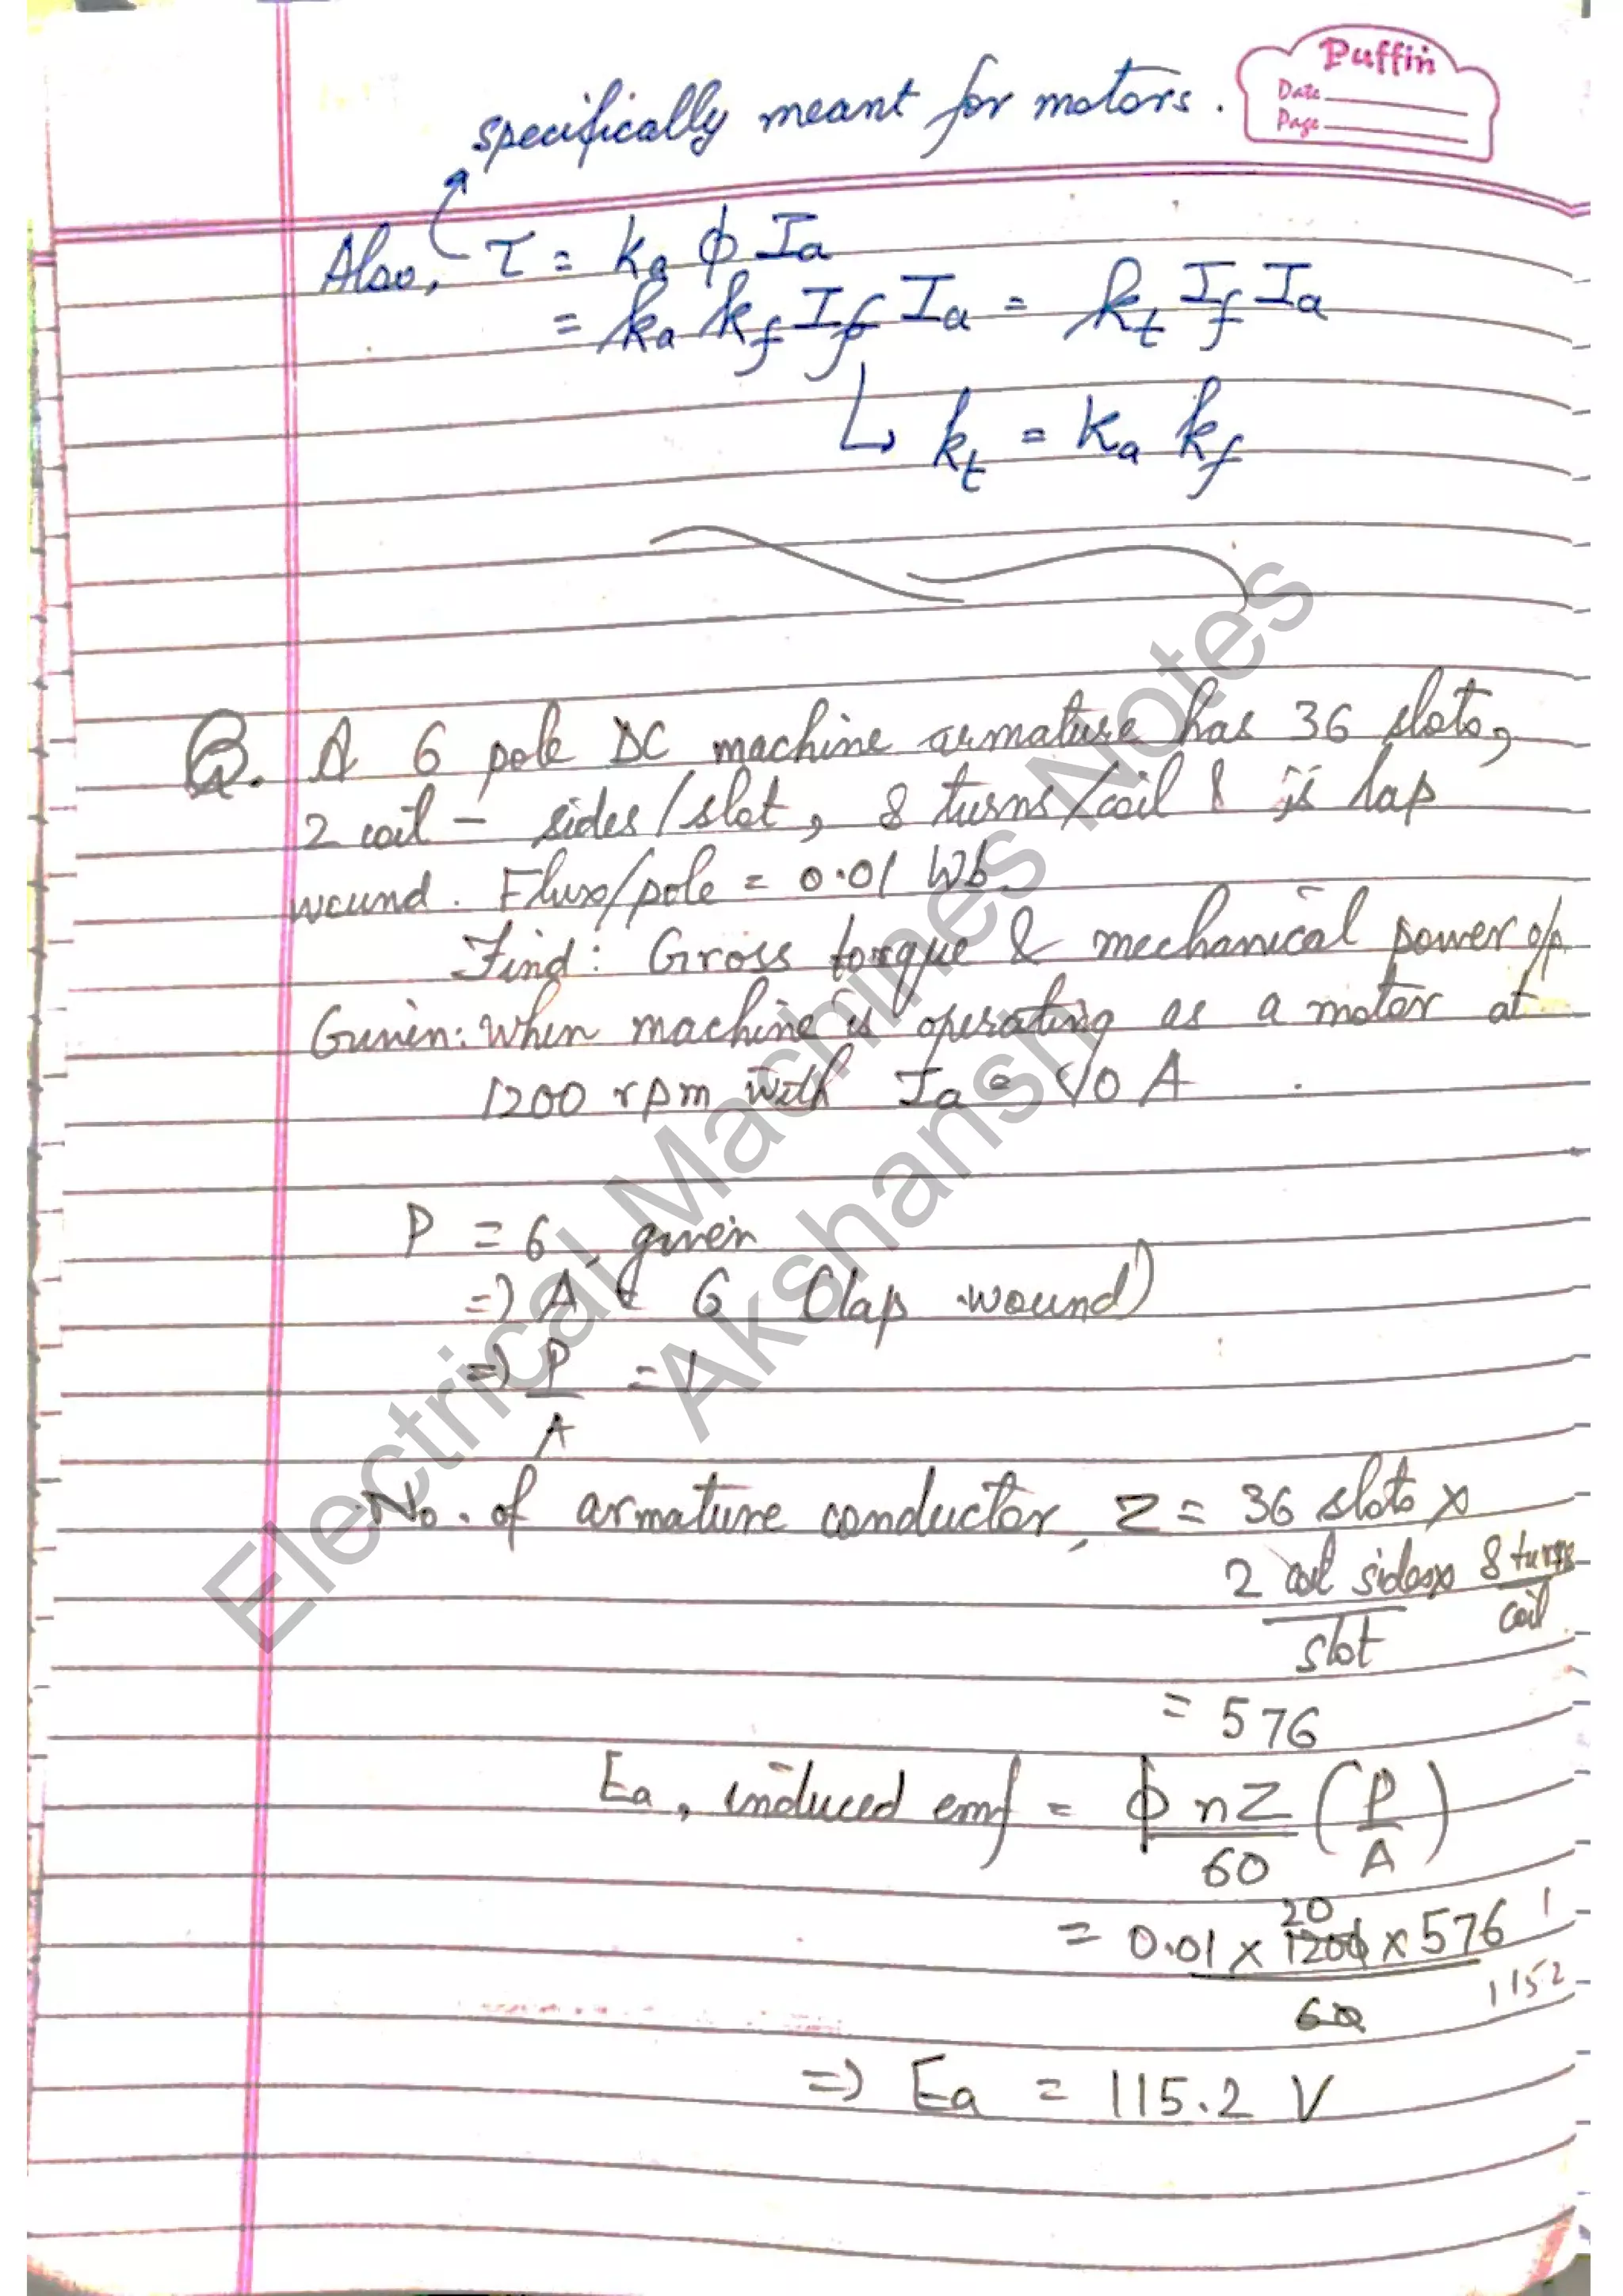 Puffin
Date
Page
specifically meant for motors.
Also, τ = Ka ϕ Ia
= ka kf If Ia = kt If Ia
↳ kt = Ka kf
Q. A 6 pole DC machine armature has 36 slots,
2 coil - sides/slot, 8 turns/coil & is lap
wound. Flux/pole = 0.01 Wb
Find: Gross torque & mechanical power o/p
Given: When machine is operating as a motor at
1200 rpm with Ia = 40 A
P = 6, given
=> A = 6 (lap wound)
=> P/A = 1
No. of armature conductor, Z = 36 slots x
2 coil sides/slot x 8 turns/coil
= 576
Ea, induced emf = ϕnZ/60 (P/A)
= 0.01 x 1200 x 576 / 60
20
1
1152
=> Ea = 115.2 V
Electrical Machines Notes
Akshansh